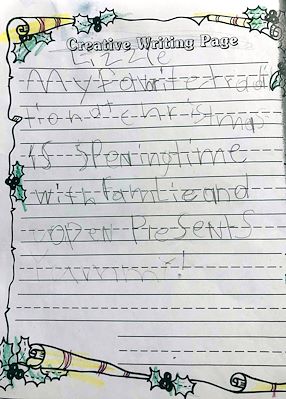 Creative Writing Page
Lizzie
My favorite tradi
tion at christmas
is Speningtime
with familieand
open PreSeNtS